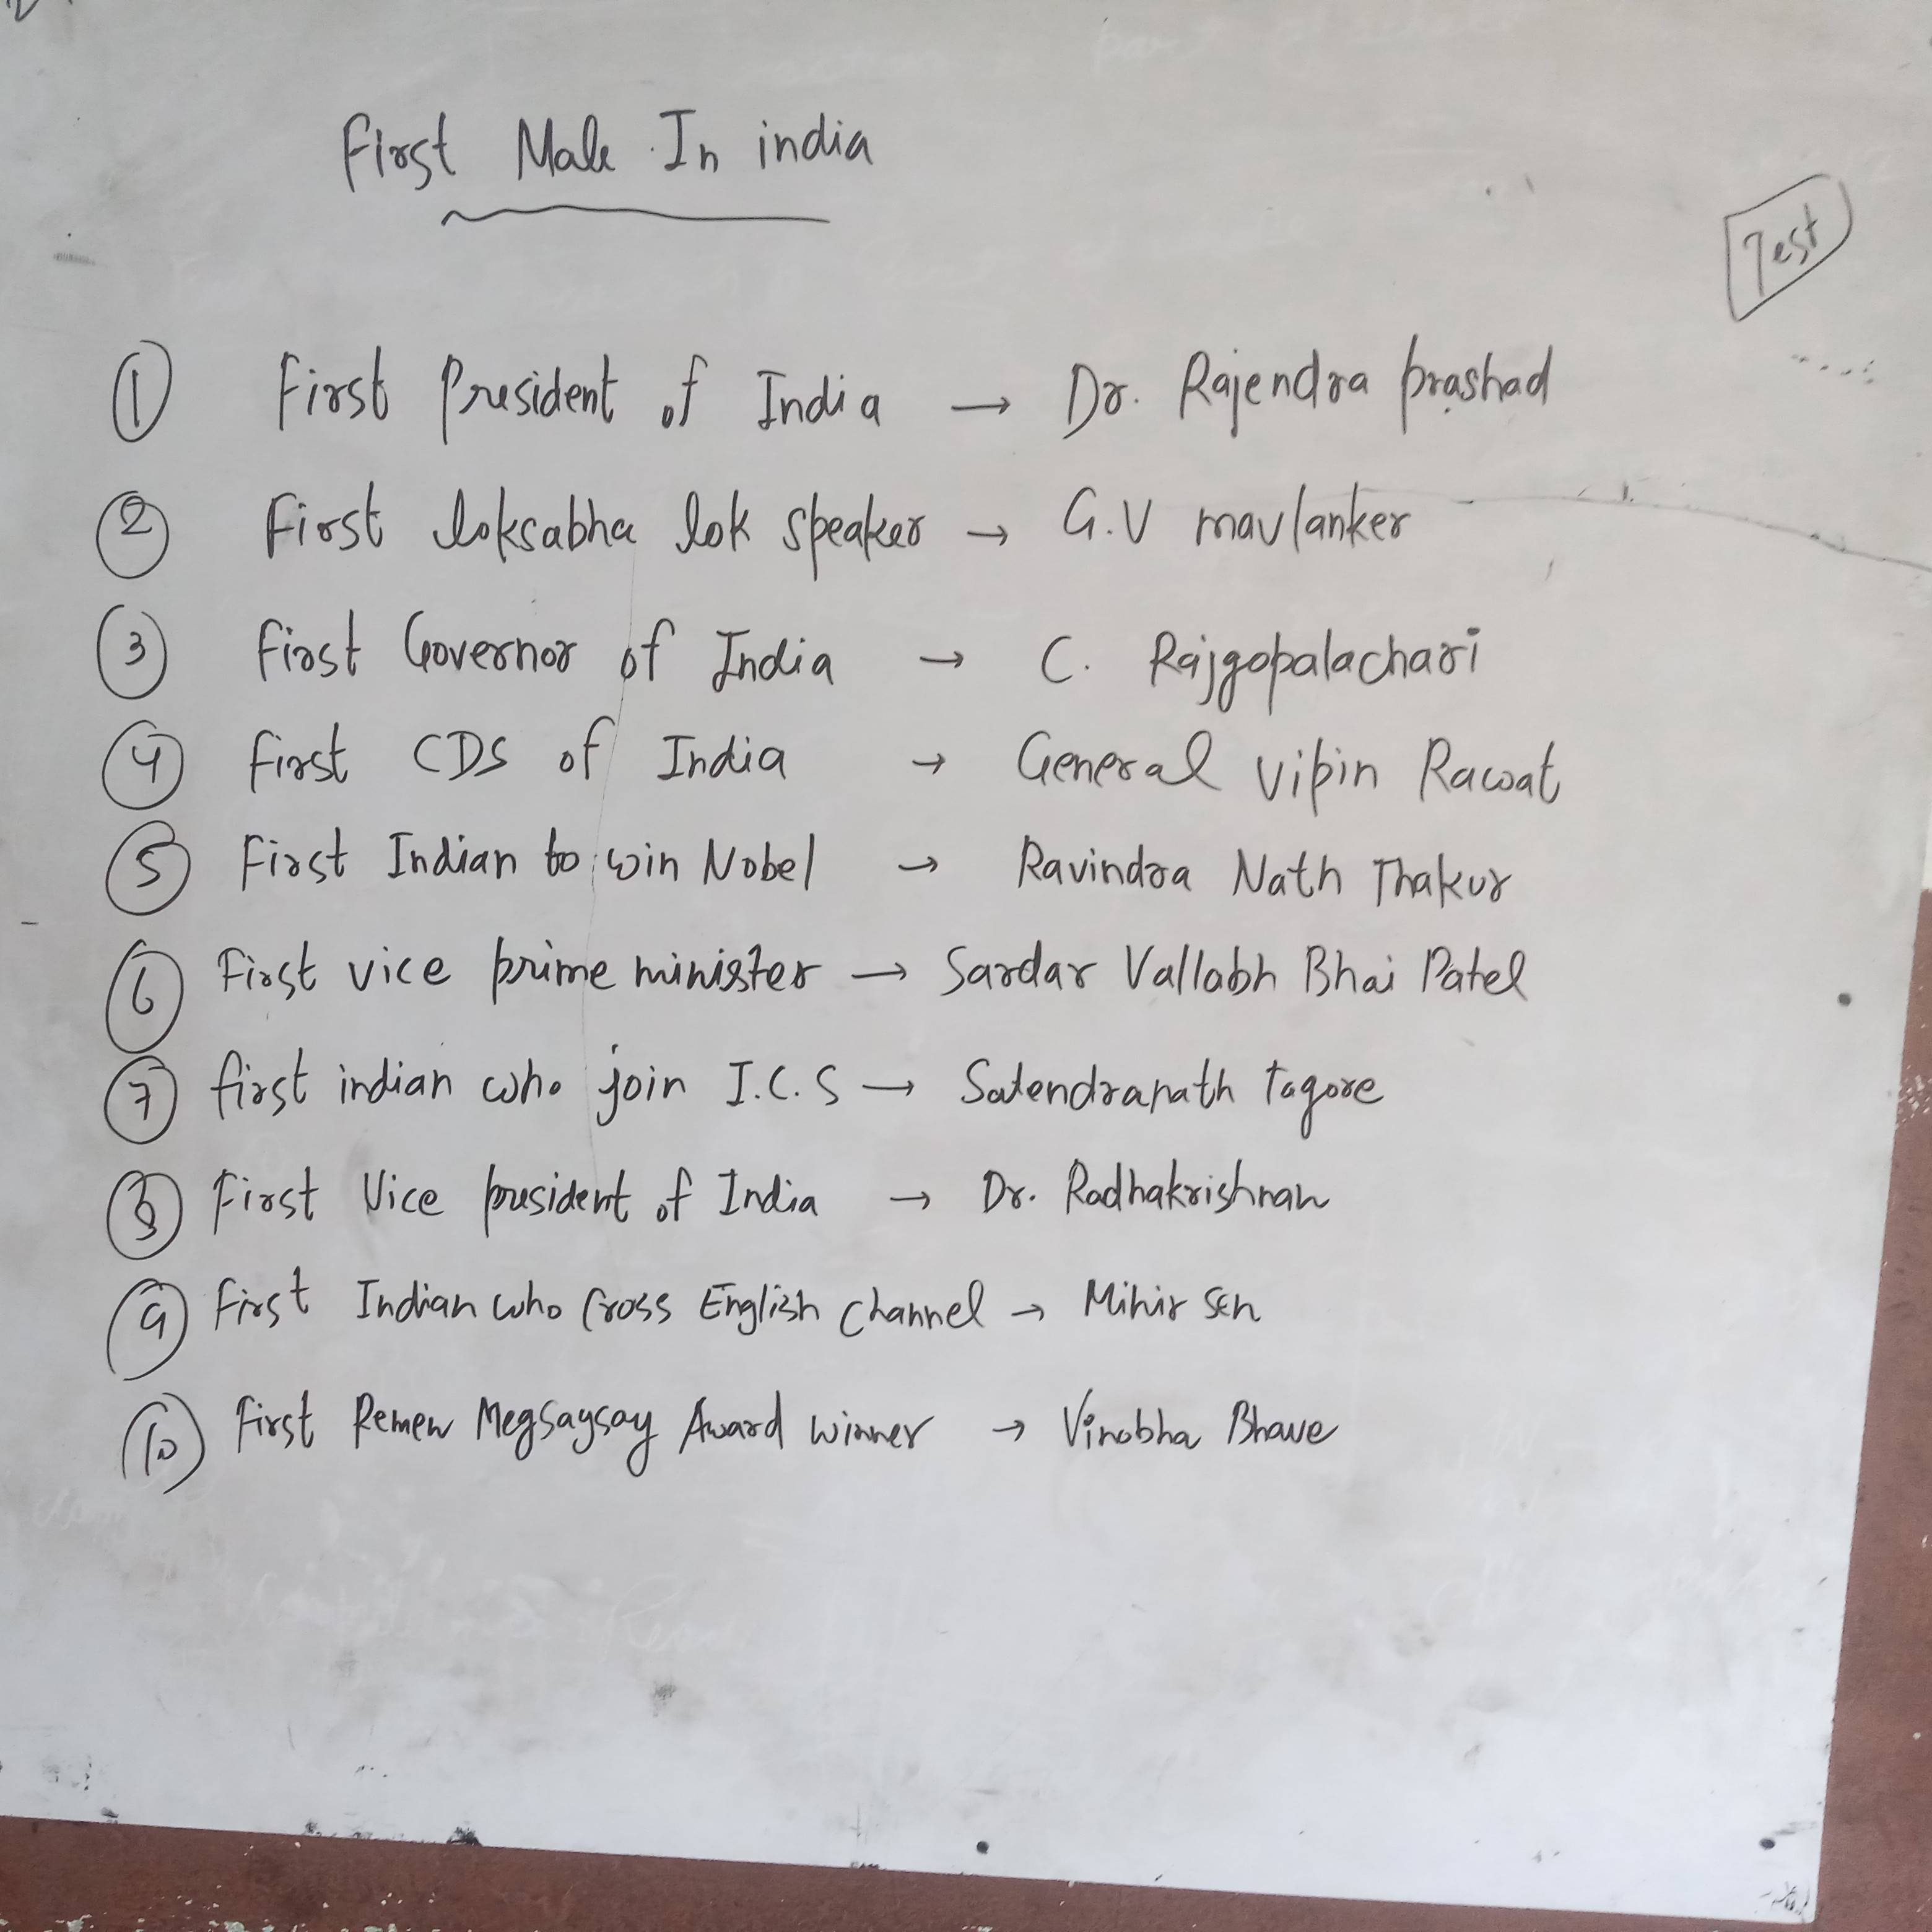 First Male In india
Test
1 First President of India → Dr. Rajendra prashad
2 First loksabha lok speaker → G.V mavlanker
3 First Governor of India → C. Rajgopalachari
4 First CDS of India → General vipin Rawat
5 First Indian to win Nobel → Ravindra Nath Thakur
6 First vice prime minister → Sardar Vallabh Bhai Patel
7 first indian who join I.C.S → Satendranath tagore
8 First Vice president of India → Dr. Radhakrishnan
9 First Indian who Cross English channel → Mihir Sen
10 First Remen Megsaysay Award winner → Vinobha Bhave